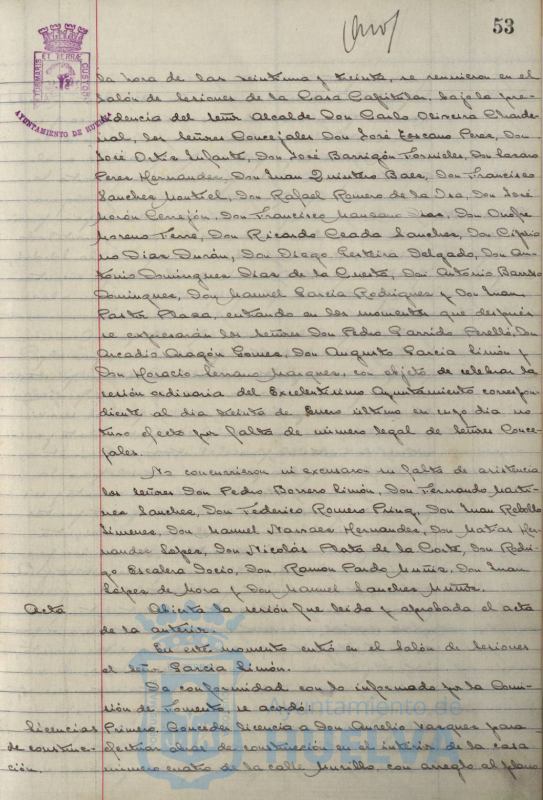 53
la hora de las veintiuna y treinta, se reunieron en el
Salón de Sesiones de la Casa Capitular, bajo la pre-
sidencia del Señor Alcalde Don Carlos Oliveira Chardenal, los Señores Concejales Don José Escano Perez, Don
José Ortiz Infante, Don José Barrigón Fornieles, Don Lazaro
Perez Hernandez, Don Juan Quintero Baez, Don Francisco
Sanchez Montiel, Don Rafael Romero de la Osa, Don José
Morón Cerrejón, Don Francisco Manzano Diaz, Don Onofre
Moreno Ferré, Don Ricardo Ceada Sanchez, Don Cipria-
no Diaz Durán, Don Diego Lesteira Delgado, Don An-
tonio Dominguez Diaz de la Cuesta, Don Antonio Barroso
Dominguez, Don Manuel Garcia Rodriguez y Don Juan
Pastr Plaza, entrando en los momentos que después
se expresarán los Señores Don Pedro Garrido Perelló, Don
Arcadio Aragón Gomez, Don Augusto Garcia Limón y
Don Horacio Serrano Marquez, con objeto de celebrar la
sesión ordinaria del Excelentisimo Ayuntamiento correspon-
diente al dia treinta de Enero último en cuyo dia no
tuvo efecto por falta de número legal de Señores Conce-
jales.
No concurrieron ni excusaron su falta de asistencia
los Señores Don Pedro Borrero Limón, Don Fernando Marti-
nez Sanchez, Don Federico Romero Prinq, Don Juan Rebollo
Jimenez, Don Manuel Narvaez Hernandez, Don Matias Her-
nandez Lopez, Don Nicolás Plata de la Corte, Don Rodri-
go Escalera Docio, Don Ramon Pardo Muñiz, Don Juan
López de Mora y Don Manuel Sanchez Muñoz.
Acta Abierta la sesión fue leida y aprobada el acta
de la anterior.
En este momento entró en el Salón de Sesiones
el Señor Garcia Limón.
De conformidad con lo informado por la Comi-
sión de Fomento, se acordó:
Licencias Primero. Conceder licencia a Don Aurelio Vazquez para
de construc- efectuar obras de construcción en el interior de la casa
ción. número cuatro de la calle Murillo, con arreglo al plano
AYUNTAMIENTO DE HUELVA
Ayuntamiento de
HUELVA